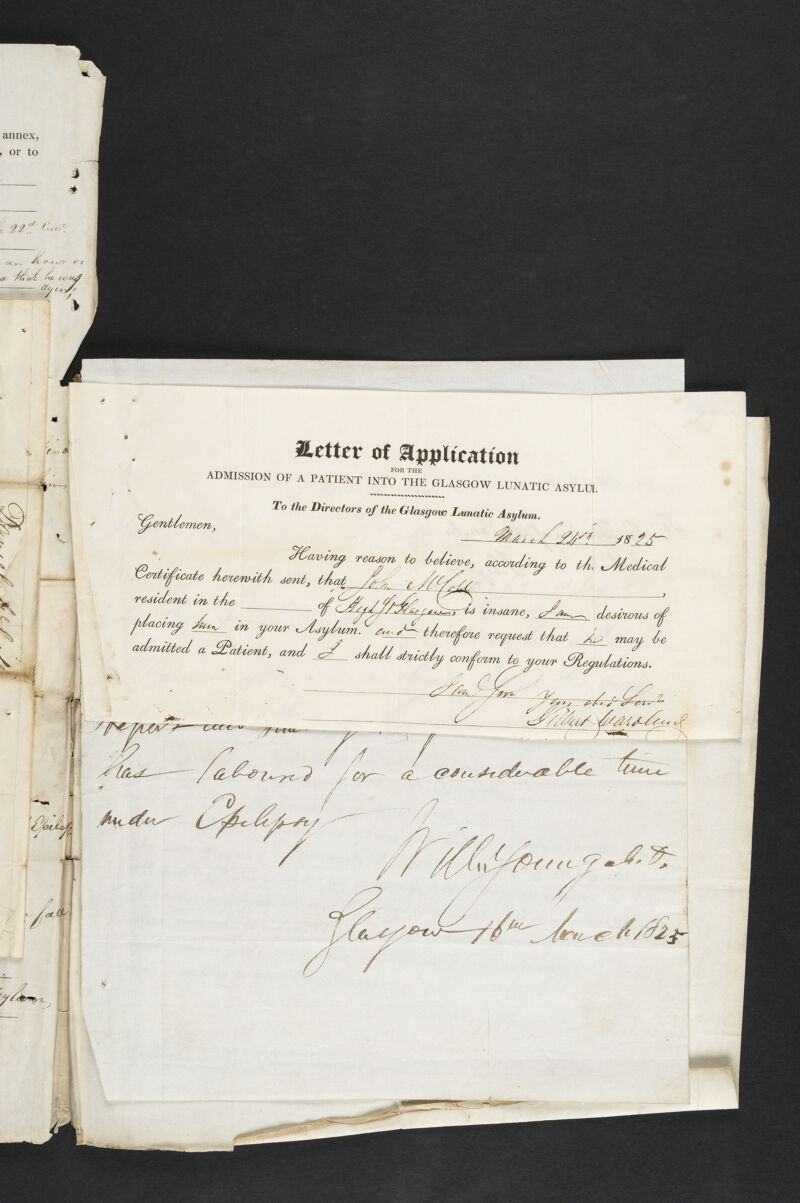 annex,
, or to
22d Curt.
an hour or
that he was
dying
Letter of Application
FOR THE
ADMISSION OF A PATIENT INTO THE GLASGOW LUNATIC ASYLU
To the Directors of the Glasgow Lunatic Asylum.
March 24th 1825
Gentlemen,
Having reason to believe, according to th Medical
Certificate herewith sent, that John McColl,
resident in the of High St Glasgow, is insane, I am desirous of
placing him in your Asylum. and therefore request that he may be
admitted a Patient, and I shall strictly conform to your Regulations.
Your obt Servt
has laboured for a considerable time
under Epilepsy
Willm Young M.D.
Glasgow 16th March 1825